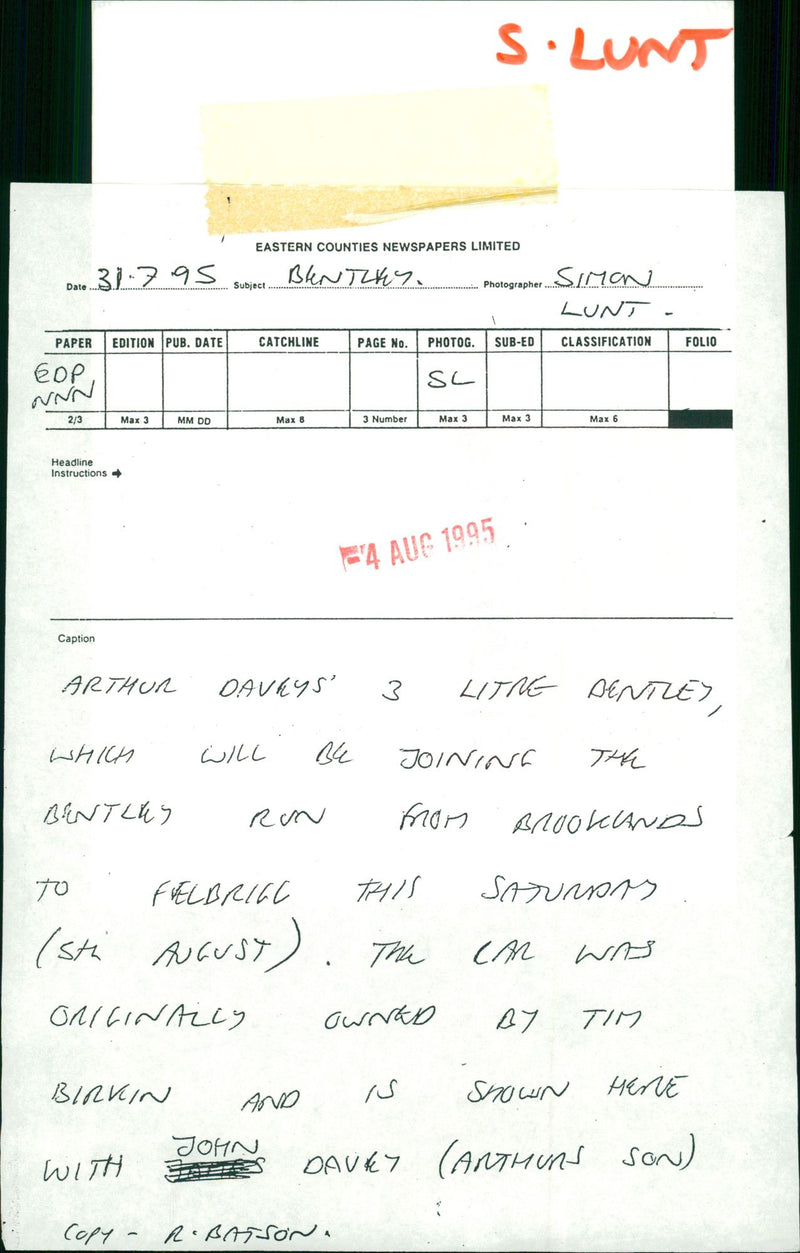 S. LUNT
EASTERN COUNTIES NEWSPAPERS LIMITED
Date 31.7.95 Subject BENTLEY. Photographer SIMON
LUNT -
PAPER EDITION PUB. DATE CATCHLINE PAGE No. PHOTOG. SUB-ED CLASSIFICATION FOLIO
EDP SL
NNN
2/3 Max 3 MM DD Max 8 3 Number Max 3 Max 3 Max 6
Headline
Instructions ➔
-4 AUG 1995
Caption
ARTHUR DAVEYS' 3 LITRE BENTLEY,
WHICH WILL BE JOINING THE
BENTLEY RUN FROM BROOKLANDS
TO FELBRIGG THIS SATURDAY
(5th AUGUST). THE CAR WAS
ORIGINALLY OWNED BY TIM
BIRKIN AND IS SHOWN HERE
WITH JOHN DAVEY (ARTHURS SON)
COPY - R. BATSON.